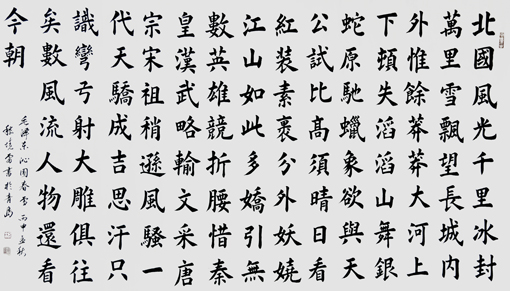 北國風光千里冰封
萬里雪飄望長城內
外惟餘莽莽大河上
下頓失滔滔山舞銀
蛇原馳蠟象欲與天
公試比髙須晴日看
紅裝素裹分外妖嬈
江山如此多嬌引無
數英雄競折腰惜秦
皇漢武略輸文采唐
宗宋祖稍遜風騷一
代天驕成吉思汗只
識彎弓射大雕俱往
矣數風流人物還看
今朝
毛澤東沁園春雪 丙申孟秋
書於青島